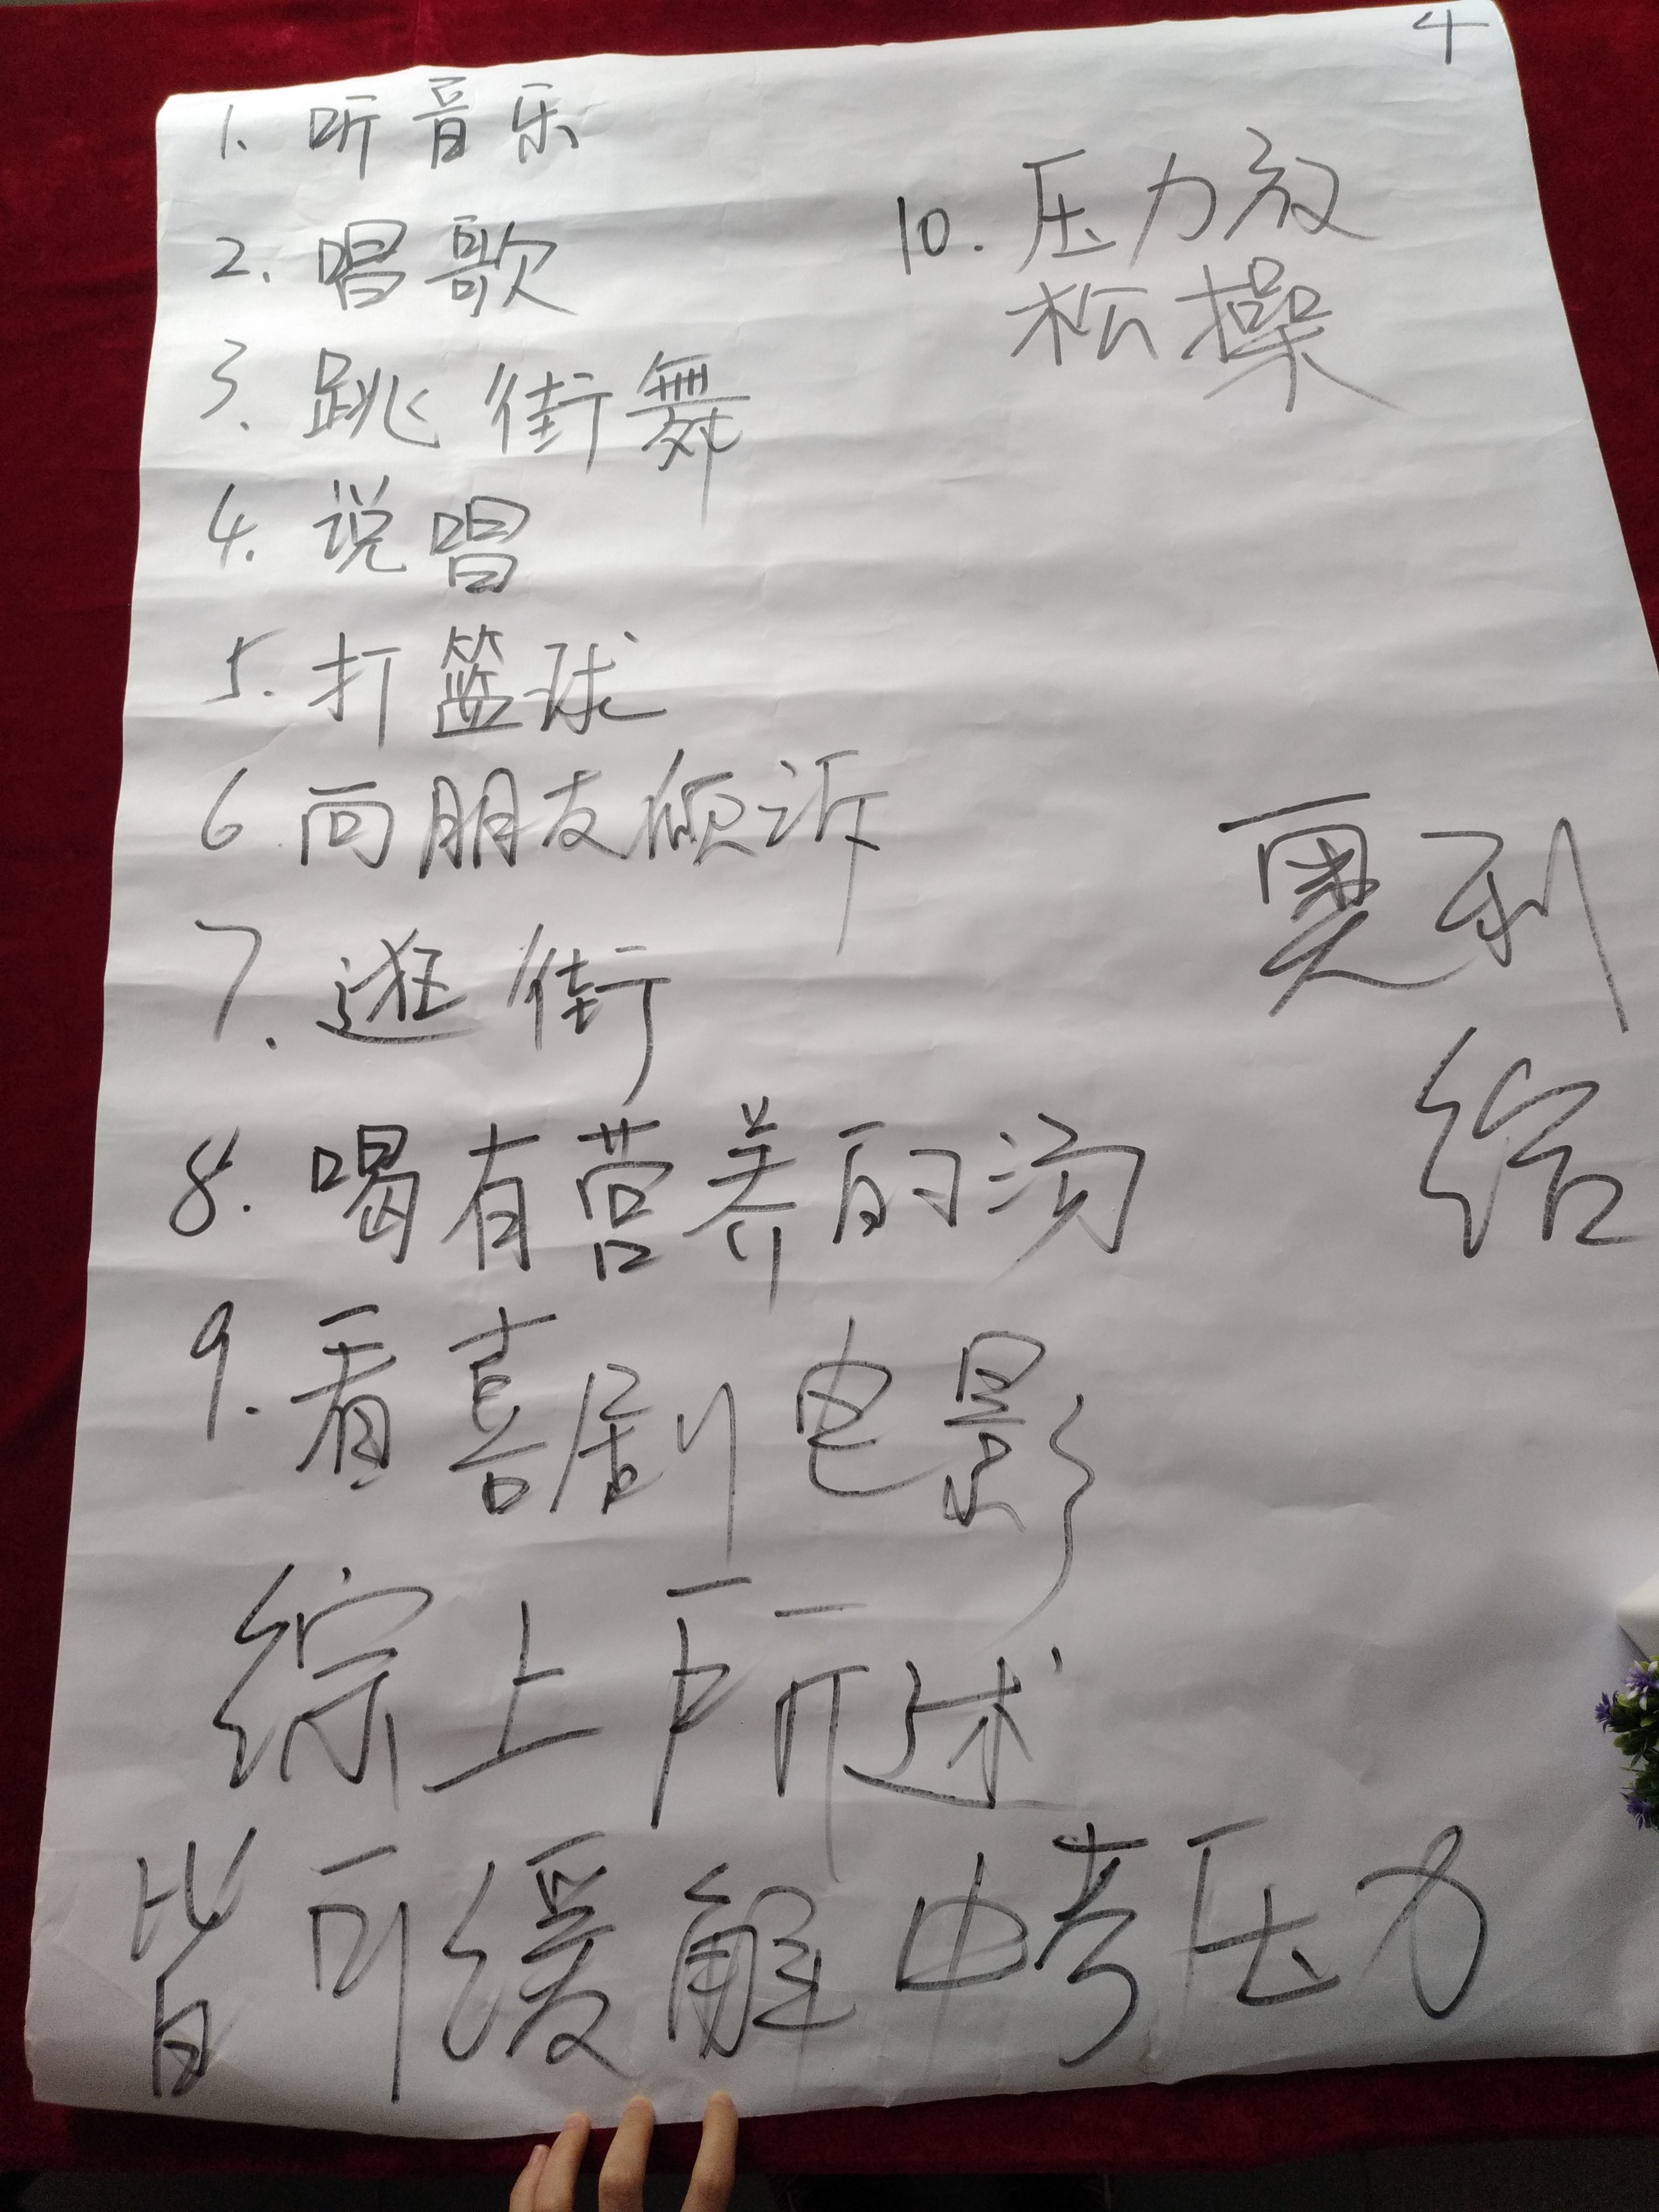 4
1. 听音乐
2. 唱歌
3. 跳街舞
4. 说唱
5. 打篮球
6 向朋友倾诉
7. 逛街
8. 喝有营养的汤
9. 看喜剧电影
10. 压力放
松操
给
综上所述
皆可缓解中考压力